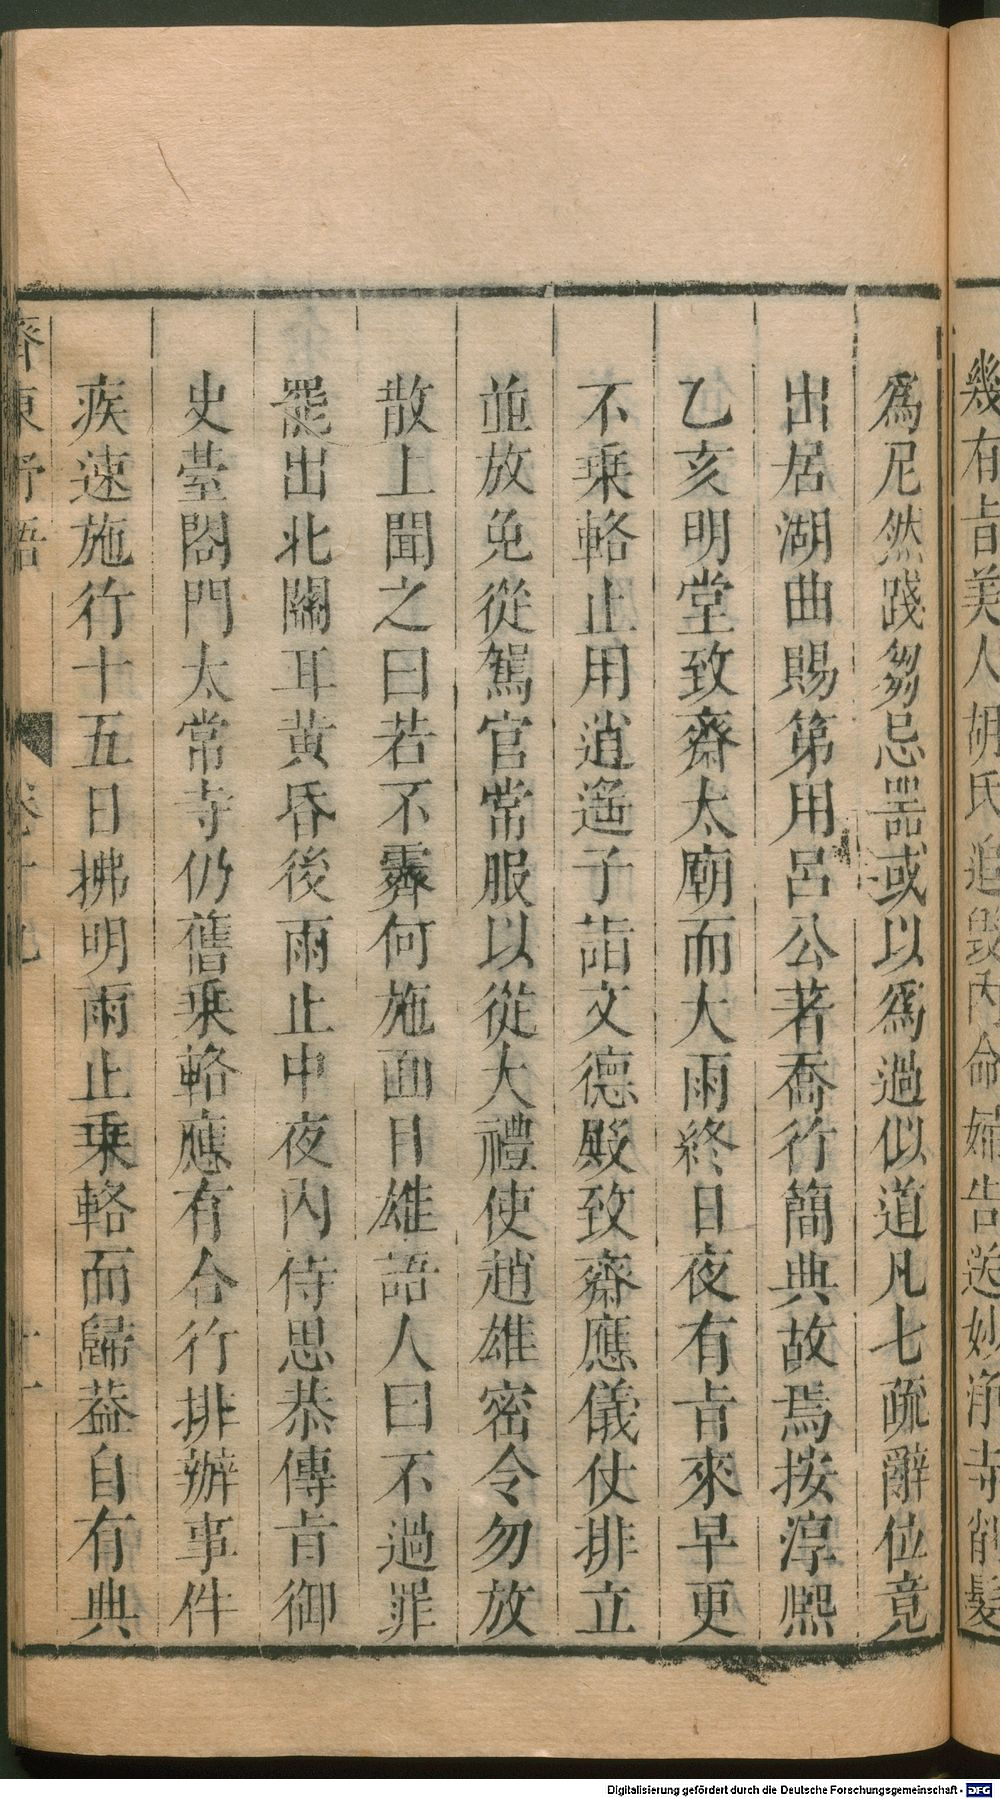 幾有旨美人胡氏追毀内命婦告送妙淨寺削髮
爲尼然踐芻忌噐或以爲過似道凡七疏辭位竟
出居湖曲賜第用呂公著喬行簡典故焉按淳熙
乙亥明堂致齋太廟而大雨終日夜有旨來早更
不乗輅止用逍遥子詣文德殿致齋應儀仗排立
並放免從駕官常服以從大禮使趙雄密令勿放
散上聞之曰若不霽何施面目雄語人曰不過罪
罷出北關耳黄昏後雨止中夜内侍思恭傳旨御
史臺閤門太常寺仍舊乗輅應有合行排辦事件
疾速施行十五日拂明雨止乗輅而歸葢自有典
齊東野語 卷十九
Digitalisierung gefördert durch die Deutsche Forschungsgemeinschaft - DFG